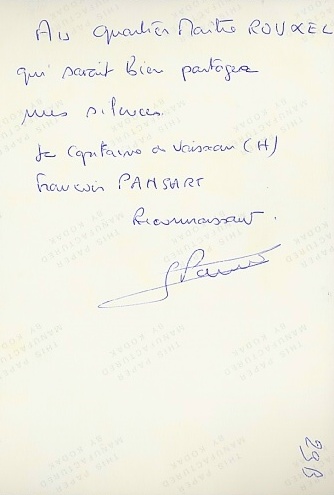 Au Quartier Maître ROUXEL
qui savait bien partager
mes silences.
Le Capitaine de Vaisseau (H)
François PANSART
Reconnaissant.
29B
THIS PAPER
MANUFACTURED
BY KODAK